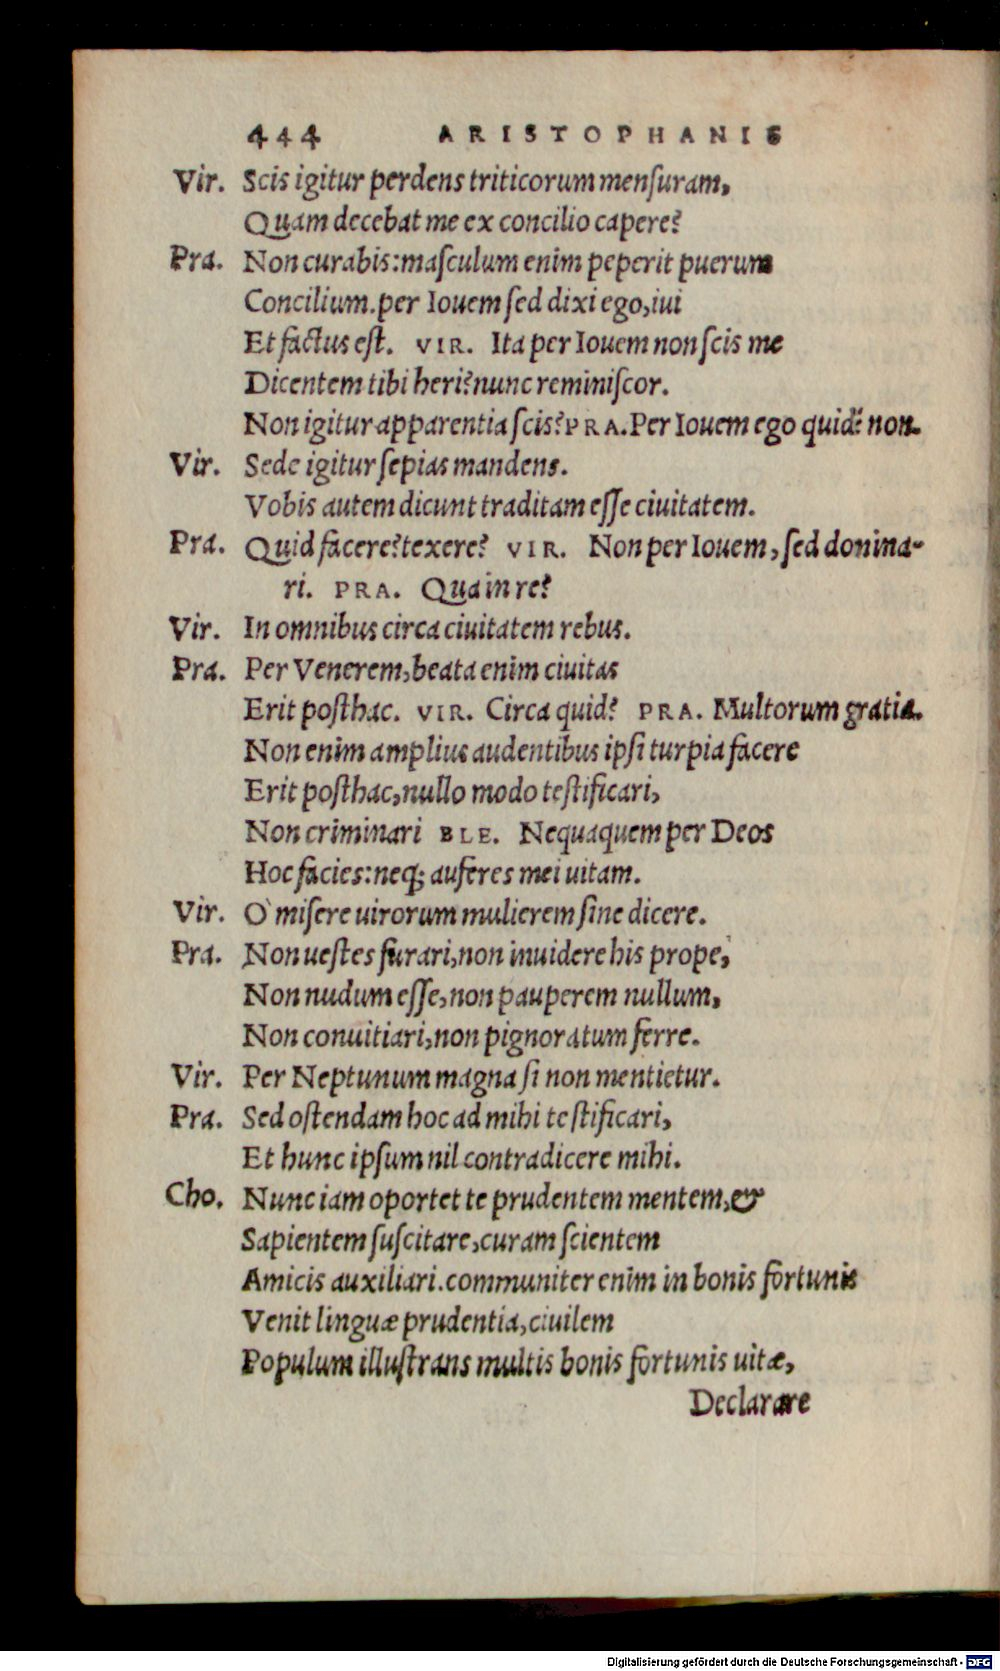 444 ARISTOPHANIS
Vir. Scis igitur perdens triticorum menſuram,
Quam decebat me ex concilio capere?
Pra. Non curabis: maſculum enim peperit puerum
Concilium. per Iouem ſed dixi ego, iui
Et factus eſt. VIR. Ita per Iouem non ſcis me
Dicentem tibi heri? nunc reminiſcor.
Non igitur apparentia ſcis? PRA. Per Iouem ego quidẽ non.
Vir. Sede igitur ſepias mandens.
Vobis autem dicunt traditam eſſe ciuitatem.
Pra. Quid facere? texere? VIR. Non per Iouem, ſed donina-
ri. PRA. Qua in re?
Vir. In omnibus circa ciuitatem rebus.
Pra. Per Venerem, beata enim ciuitas
Erit poſthac. VIR. Circa quid? PRA. Multorum gratia.
Non enim amplius audentibus ipſi turpia facere
Erit poſthac, nullo modo teſtificari,
Non criminari BLE. Nequaquem per Deos
Hoc facies: neq; auferes mei uitam.
Vir. O` miſere uirorum mulierem ſine dicere.
Pra. Non ueſtes furari, non inuidere his prope,
Non nudum eſſe, non pauperem nullum,
Non conuitiari, non pignoratum ferre.
Vir. Per Neptunum magna ſi non mentietur.
Pra. Sed oſtendam hoc ad mihi teſtificari,
Et hunc ipſum nil contradicere mihi.
Cho. Nunc iam oportet te prudentem mentem, &
Sapientem ſuſcitare, curam ſcientem
Amicis auxiliari. communiter enim in bonis fortunis
Venit linguæ prudentia, ciuilem
Populum illuſtrans multis bonis fortunis uitæ,
Declarare
Digitalisierung gefördert durch die Deutsche Forschungsgemeinschaft - DFG